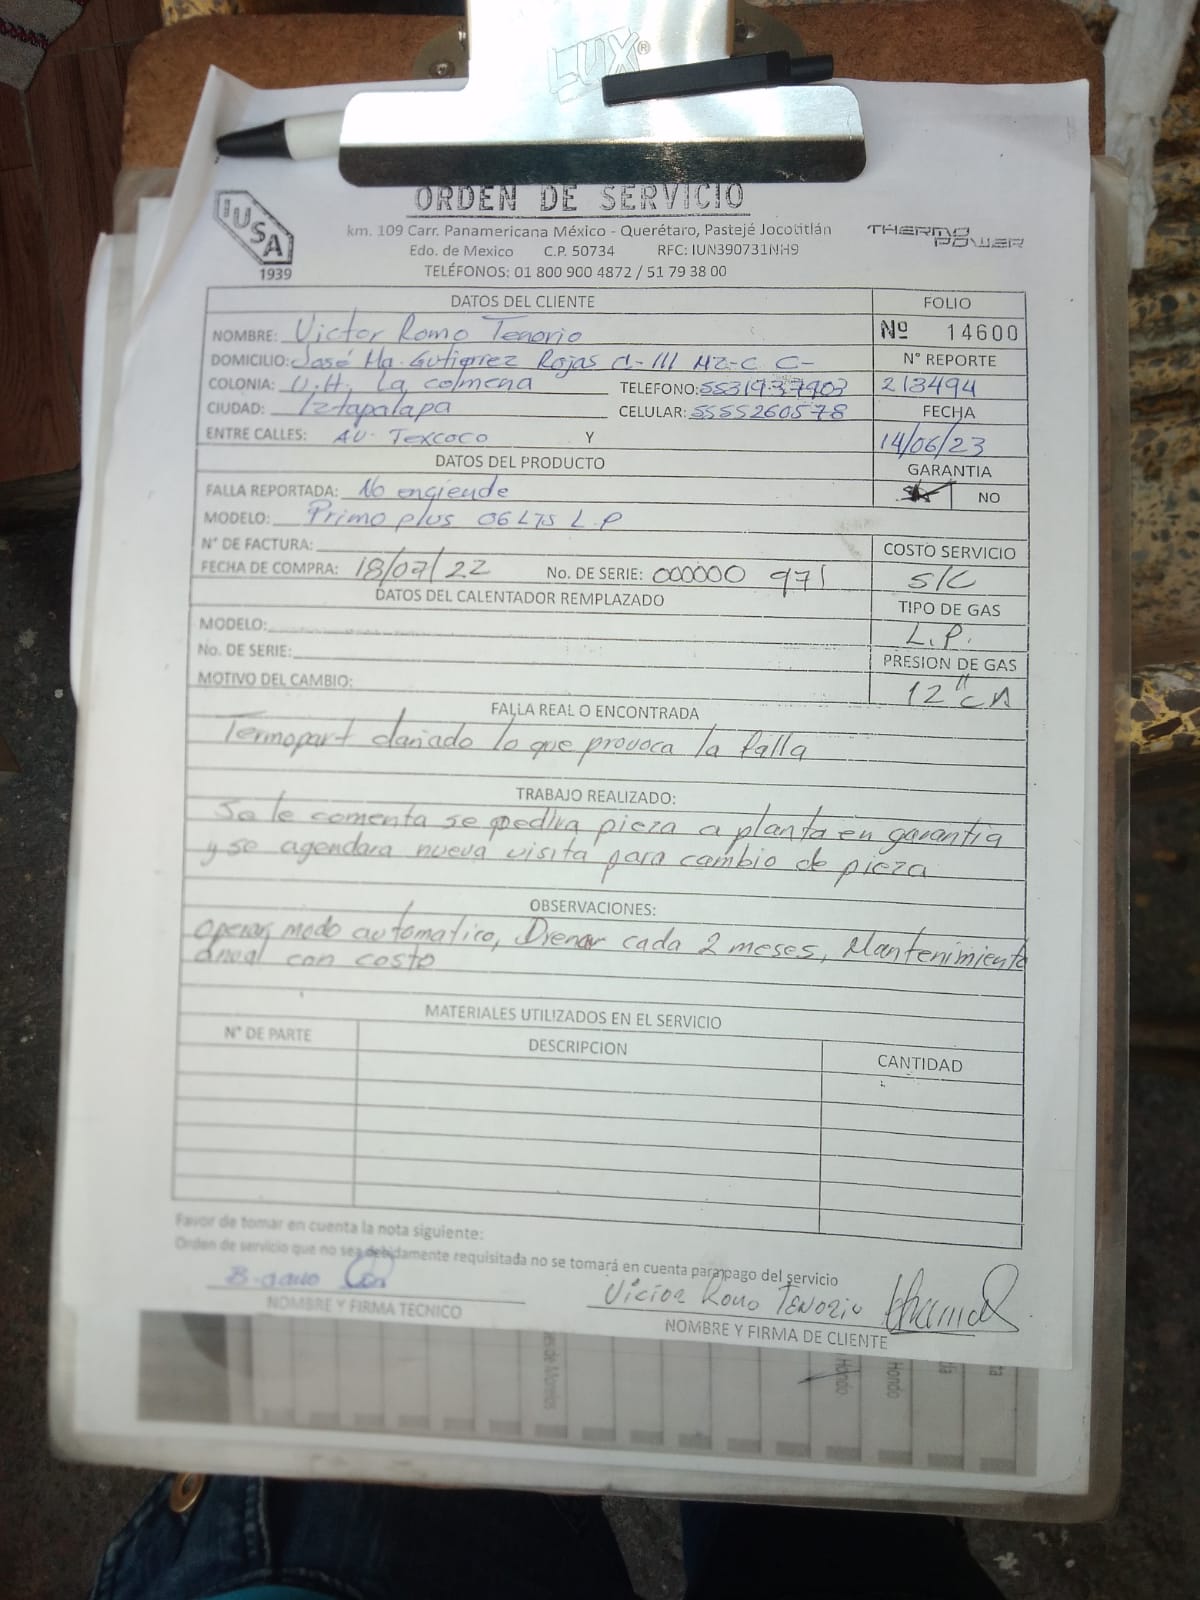 LUX®
ORDEN DE SERVICIO
IUSA
1939
km. 109 Carr. Panamericana México - Querétaro, Pastejé Jocotitlán
Edo. de Mexico C.P. 50734 RFC: IUN390731NH9
TELÉFONOS: 01 800 900 4872 / 51 79 38 00
THERMO POWER
DATOS DEL CLIENTE
FOLIO
NOMBRE: Victor Romo Tenorio
Nº 14600
DOMICILIO: José Ma. Gutierrez Rojas A-III MZ-C C-
N° REPORTE
COLONIA: U.H. la colmena TELEFONO: 5531937903
213494
CIUDAD: Iztapalapa CELULAR: 5555260578
FECHA
ENTRE CALLES: AV. Texcoco Y
14/06/23
DATOS DEL PRODUCTO
GARANTIA
FALLA REPORTADA: No engiende
NO
MODELO: Primo plus 06 L7S L.P
N° DE FACTURA:
COSTO SERVICIO
FECHA DE COMPRA: 18/07/22 No. DE SERIE: 000000 971
S/C
DATOS DEL CALENTADOR REMPLAZADO
TIPO DE GAS
MODELO:
L.P.
No. DE SERIE:
PRESION DE GAS
MOTIVO DEL CAMBIO:
12" CA
FALLA REAL O ENCONTRADA
Termopart dañado lo que provoca la falla
TRABAJO REALIZADO:
Se le comenta se pedira pieza a planta en garantia
y se agendara nueva visita para cambio de pieza
OBSERVACIONES:
Operar modo automatico, Drenar cada 2 meses, Mantenimiento
anual con costo
MATERIALES UTILIZADOS EN EL SERVICIO
N° DE PARTE
DESCRIPCION
CANTIDAD
Favor de tomar en cuenta la nota siguiente:
Orden de servicio que no sea debidamente requisitada no se tomará en cuenta para pago del servicio
Victor Romo Tenorio
NOMBRE Y FIRMA TECNICO
NOMBRE Y FIRMA DE CLIENTE